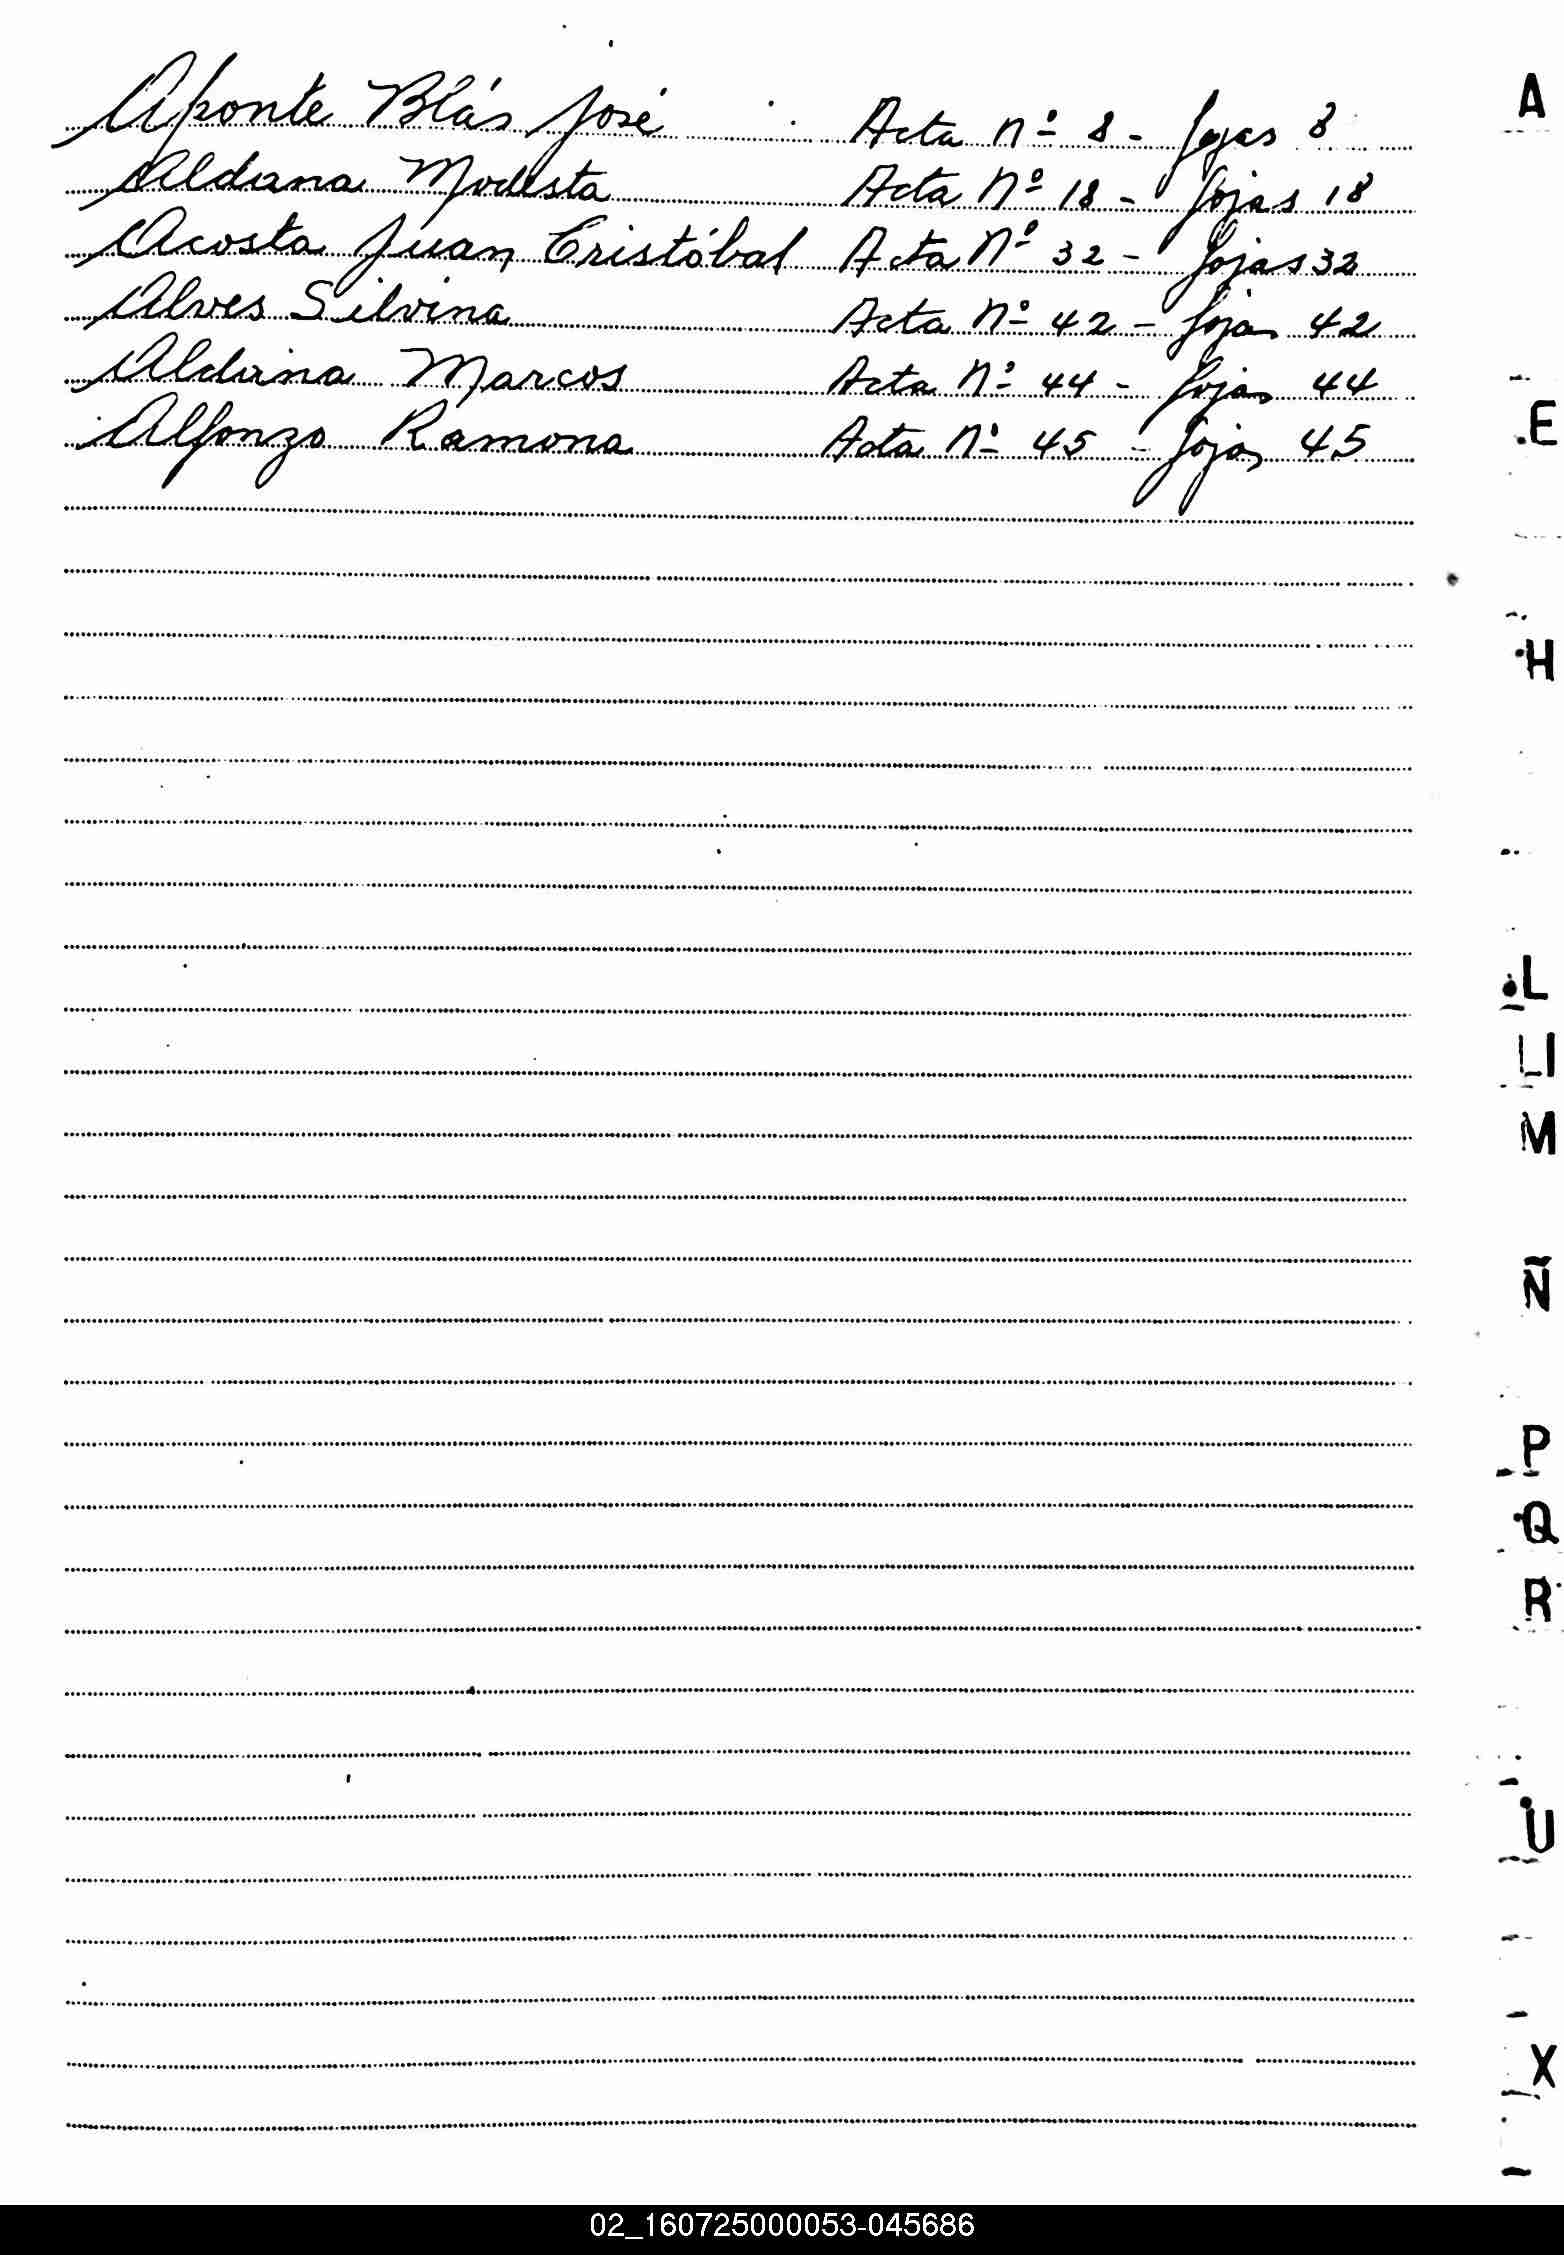 Aponte Blás José Acta nº 8 - fojas 8
Aldana Modesta Acta Nº 18 - fojas 18
Acosta Juan Cristóbal Acta Nº 32 - fojas 32
Alves Silvina Acta Nº 42 - fojas 42
Aldana Marcos Acta Nº 44 - fojas 44
Alfonzo Ramona Acta Nº 45 - fojas 45
A
E
H
L
Ll
M
Ñ
P
Q
R
U
X
02_160725000053-045686